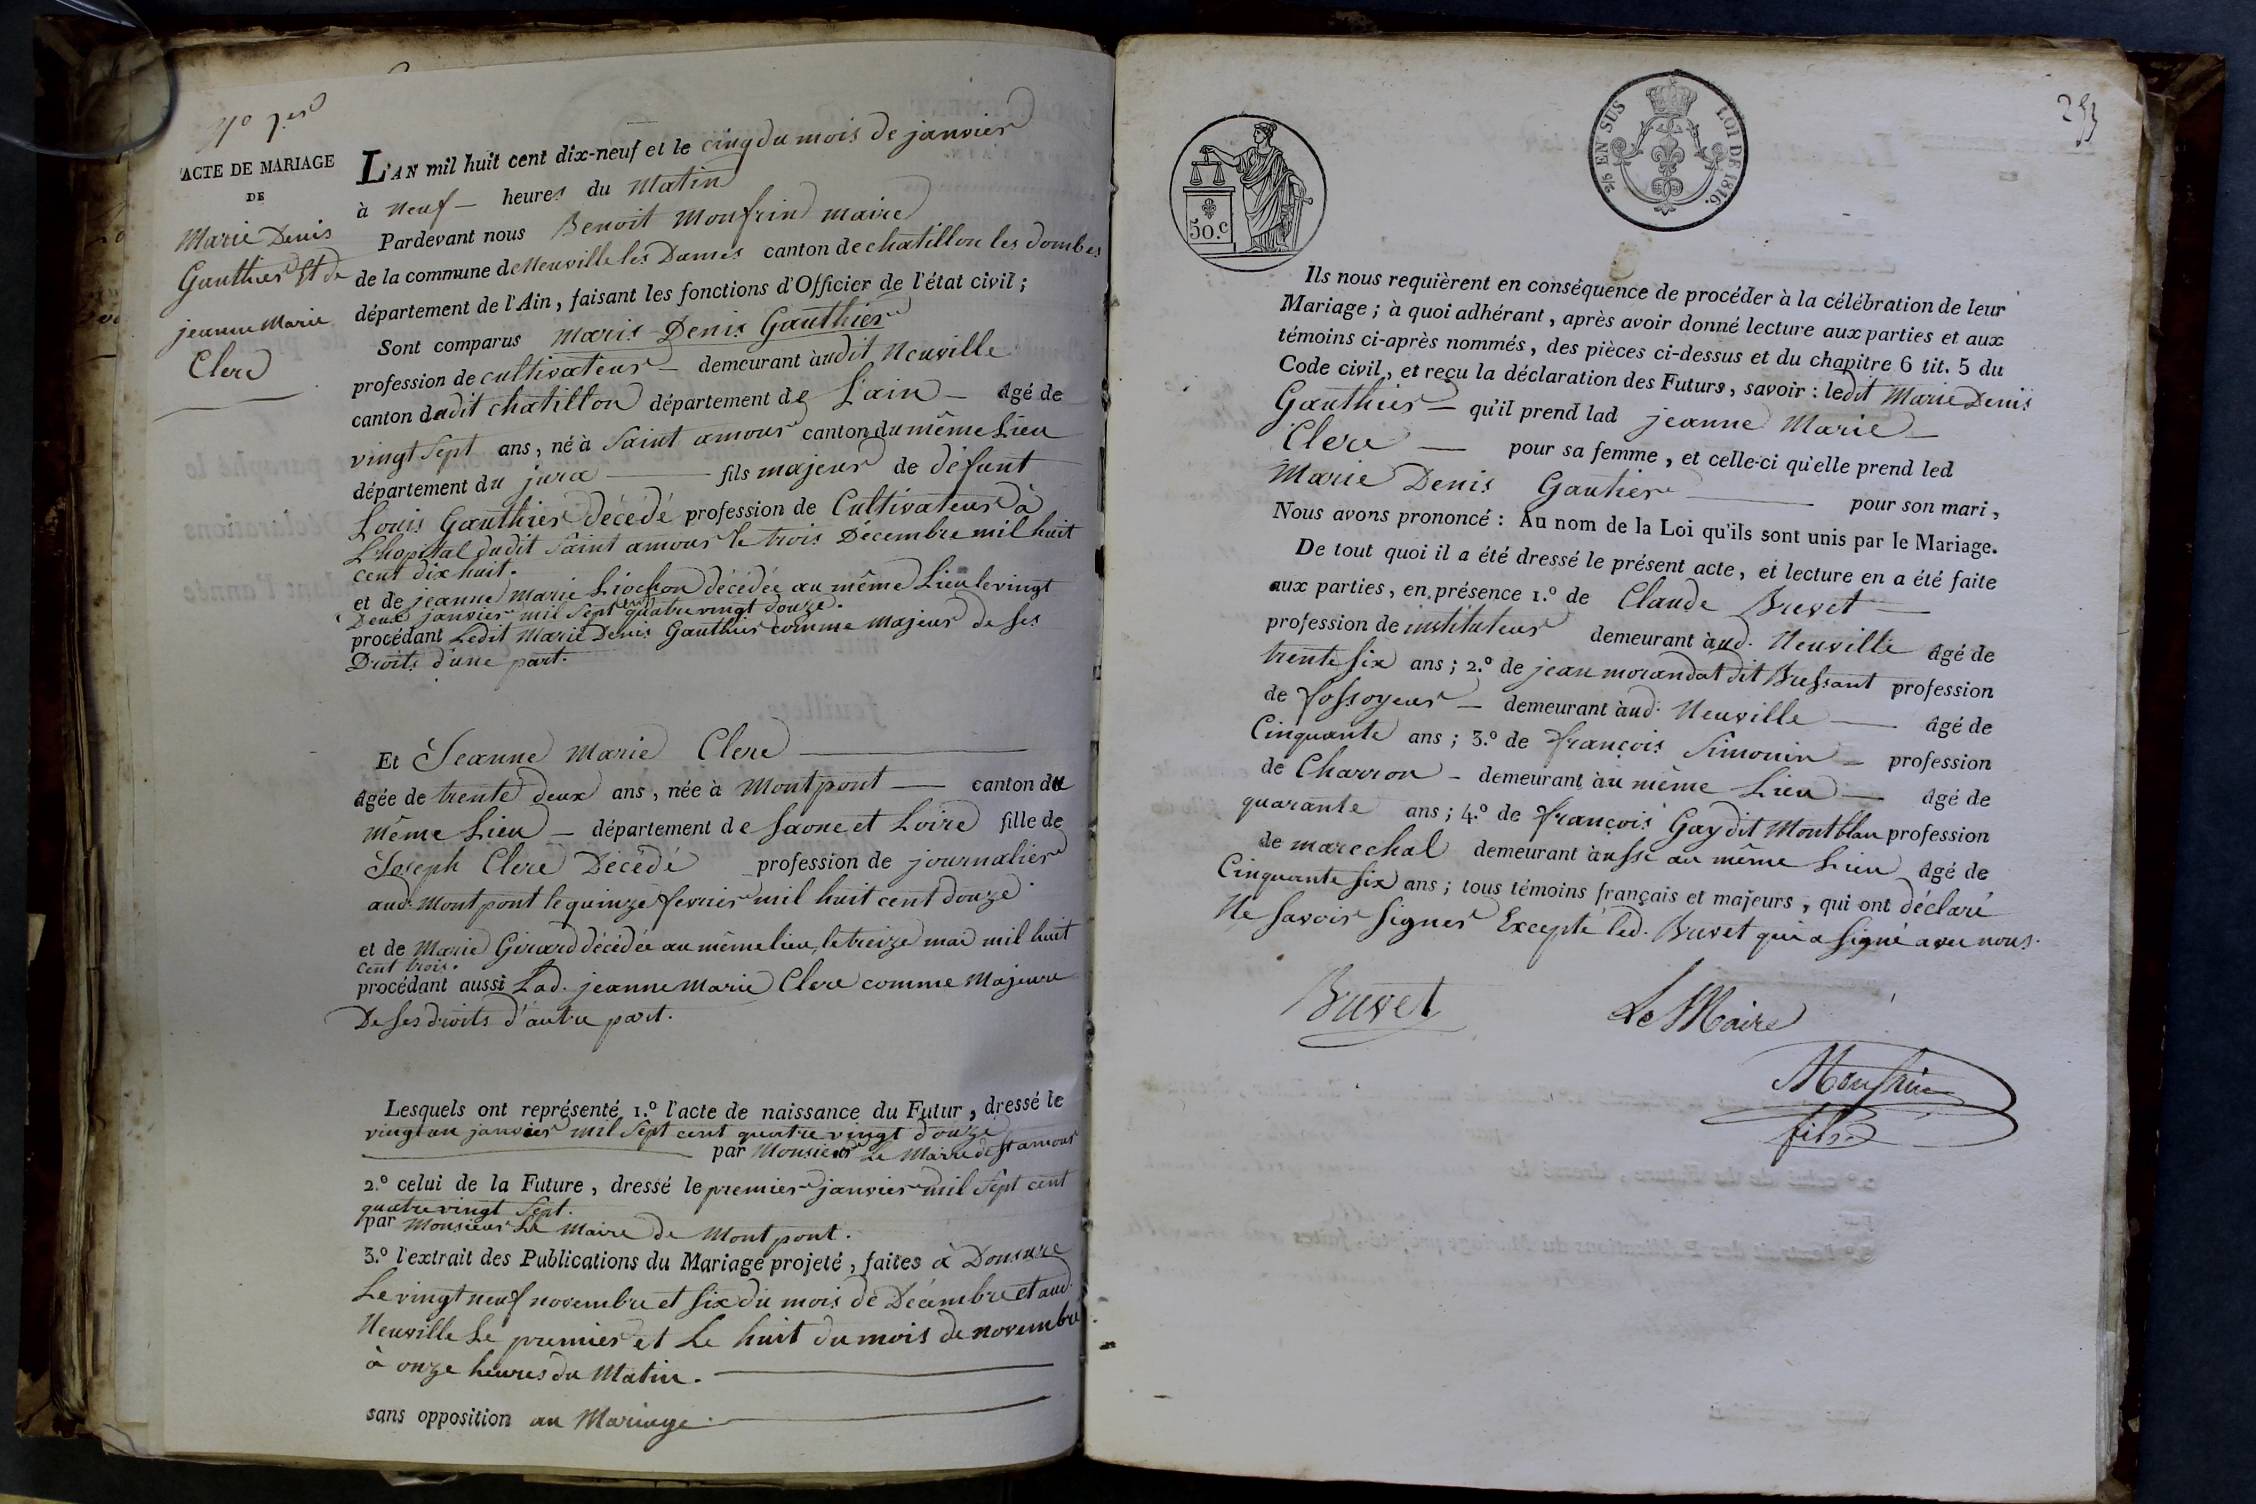 N.º 1.er
ACTE DE MARIAGE
DE
Marie Denis
Gauthier Et de
jeanne Marie
Clerc
L'AN mil huit cent dix-neuf et le cinq du mois de janvier
à neuf heures du Matin
Pardevant nous Benoit Monfrin maire
de la commune de Neuville les Dames canton de chatillon les dombes
département de l'Ain, faisant les fonctions d'Officier de l'état civil ;
Sont comparus Marie Denis Gauthier
profession de cultivateur demeurant àudit Neuville
canton dudit chatillon département de L'ain âgé de
vingt sept ans, né à Saint amour canton du même Lieu
département du jura fils majeur de défunt
Louis Gauthier décédé profession de Cultivateur à
L'hopital dudit Saint amour le trois Décembre mil huit
cent dix huit.
et de jeanne marie Liochon décédée au même Lieu le vingt
Deux janvier mil Sept cent quatre vingt douze.
procédant Ledit Marie Denis Gauthier comme Majeur de ses
Droits d'une part.
Et Jeanne Marie Clerc
âgée de trente deux ans, née à Montpont canton du
même Lieu département de Saone et Loire fille de
Joseph Clerc Décédé profession de journalier
aud. Montpont le quinze fevrier mil huit cent douze
et de Marie Girard décédée au même lieu, le treize mai mil huit
cent trois.
procédant aussi Lad. jeanne Marie Clerc comme Majeure
De ses droits d'autre part.
Lesquels ont représenté 1.º l'acte de naissance du Futur, dressé le
vingt un janvier mil Sept cent quatre vingt douze
par Monsieur Le Maire de St amour
2.º celui de la Future, dressé le premier janvier mil Sept cent
quatre vingt Sept.
par Monsieur Le Maire de Montpont.
3.º l'extrait des Publications du Mariage projeté, faites à Domsure
Le vingt neuf novembre et Six du mois de Décembre et aud.
Neuville Le premier et Le huit du mois de novembre
à onze heures du Matin.
sans opposition au Mariage.
253
50.c
2/5 EN SUS LOI DE 1816.
Ils nous requièrent en conséquence de procéder à la célébration de leur
Mariage ; à quoi adhérant, après avoir donné lecture aux parties et aux
témoins ci-après nommés, des pièces ci-dessus et du chapitre 6 tit. 5 du
Code civil, et reçu la déclaration des Futurs, savoir : ledit Marie Denis
Gauthier qu'il prend lad jeanne Marie
Clerc pour sa femme, et celle-ci qu'elle prend led
Marie Denis Gautier pour son mari,
Nous avons prononcé : Au nom de la Loi qu'ils sont unis par le Mariage.
De tout quoi il a été dressé le présent acte, et lecture en a été faite
aux parties, en présence 1.º de Claude Buvet
profession de instituteur demeurant àud. Neuville âgé de
trente Six ans ; 2.º de jean morandat dit Bressant profession
de fossoyeur demeurant àud. Neuville âgé de
Cinquante ans ; 3.º de françois Simonin profession
de Charron demeurant àu même Lieu âgé de
quarante ans ; 4.º de françois Gay dit Montblan profession
de marechal demeurant àussi au même Lieu âgé de
Cinquante Six ans ; tous témoins français et majeurs, qui ont déclaré
Ne Savoir Signer Excepté led. Buvet qui a Signé avec nous.
Buvet
Le Maire
Monfrin
fils